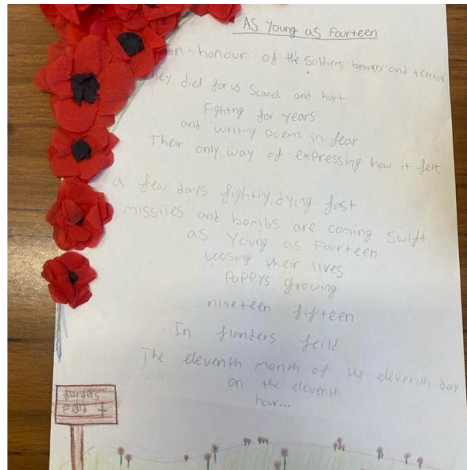 As Young as Fourteen
honour of the Soldiers bravery and terror
they died for us Scared and hurt
Fighting for years
and writing poems in fear
Their only way of expressing how it felt.
a few days fighting, dying fast
missiles and bombs are coming swift
as Young as Fourteen
Loosing their lives
Poppys growing
nineteen fifteen
In flanders feild
The eleventh month of the eleventh day
on the eleventh
hour...
flanders